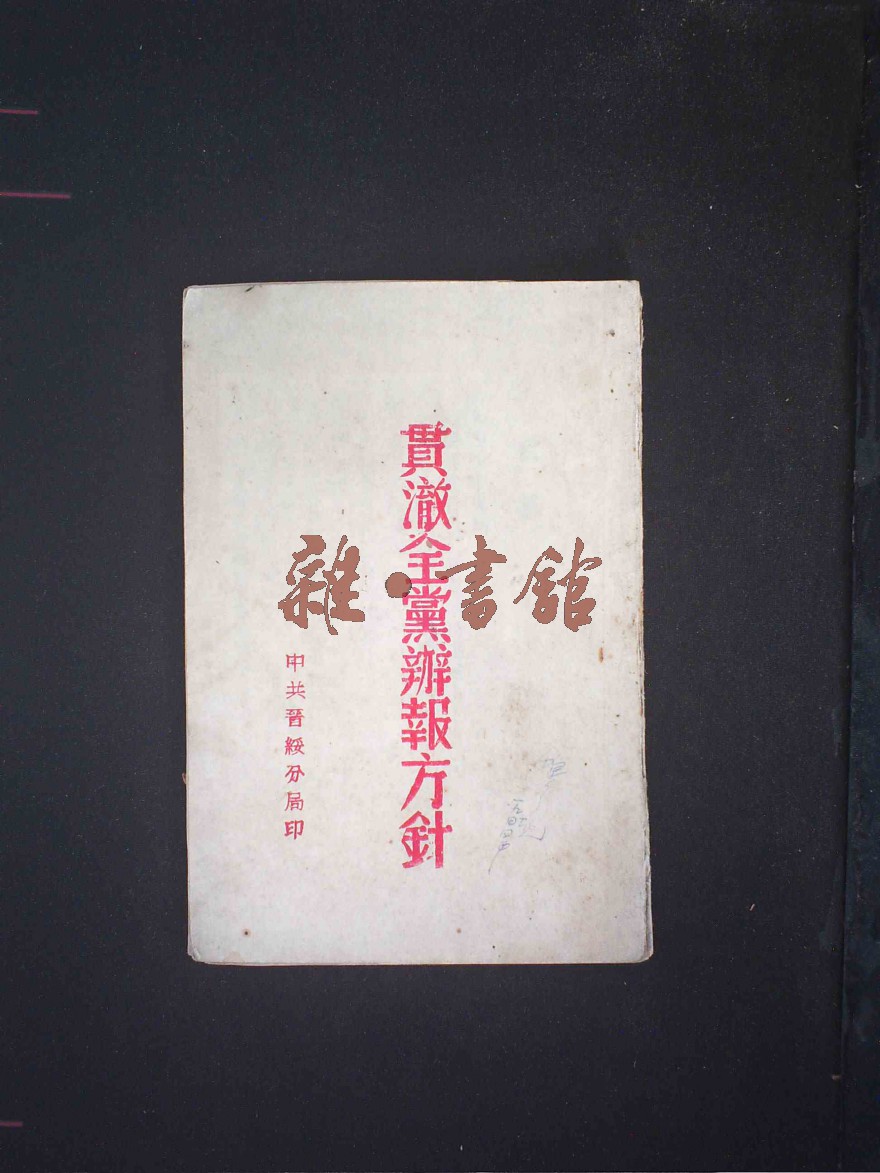 貫澈全黨辦報方針
中共晉綏分局印
雜·書館